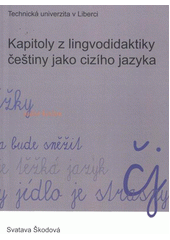 Technická univerzita v Liberci
Kapitoly z lingvodidaktiky
češtiny jako cizího jazyka
žky
a bude sněžit
je těžká jazyk
čj
y jídlo je strašný
Svatava Škodová